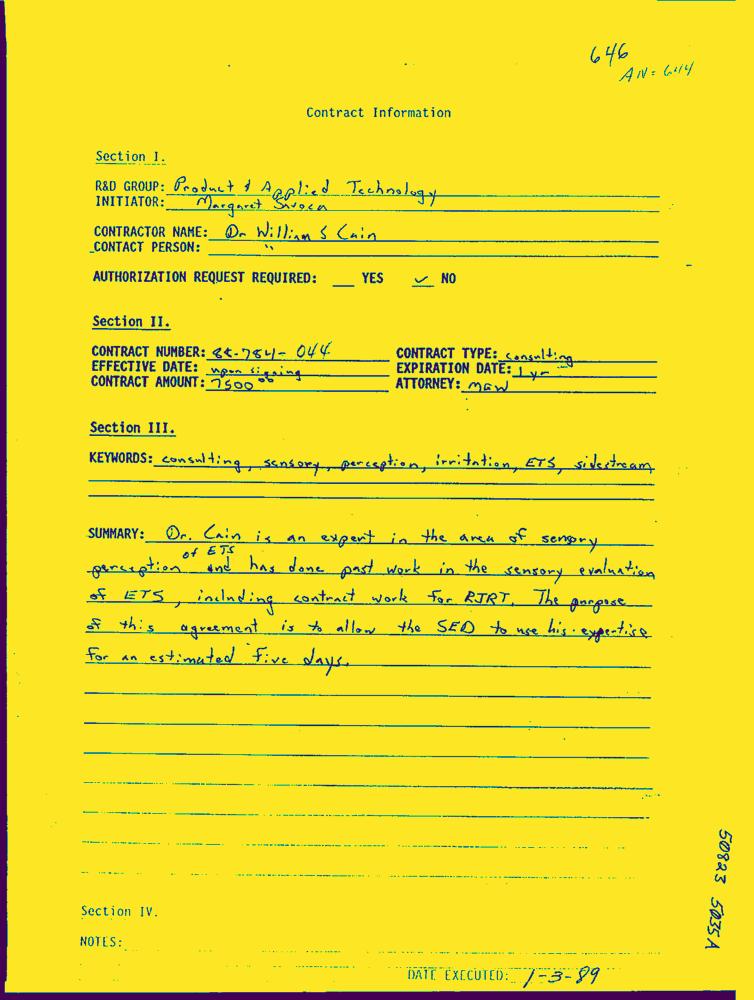 646
AN= 644
Contract Information
Section I.
R&D GROUP: Product & Applied Technology
INITIATOR: Margaret Savoca
CONTRACTOR NAME: Dr William S Cain
CONTACT PERSON: "
AUTHORIZATION REQUEST REQUIRED: YES ✓ NO
Section II.
CONTRACT NUMBER: 88-784- 044 CONTRACT TYPE: consulting
EFFECTIVE DATE: upon signing EXPIRATION DATE: 1 yr
CONTRACT AMOUNT: 7500 00 ATTORNEY: MGW
Section III.
KEYWORDS: consulting, sensory, perception, irritation, ETS, sidestream
SUMMARY: Dr. Cain is an expert in the area of sensory
of ETS
perception and has done past work in the sensory evaluation
of ETS, including contract work for RJRT. The purpose
of this agreement is to allow the SED to use his expertise
for an estimated five days.
Section IV.
NOTES:
DATE EXECUTED: 1-3-89
50823 5035A